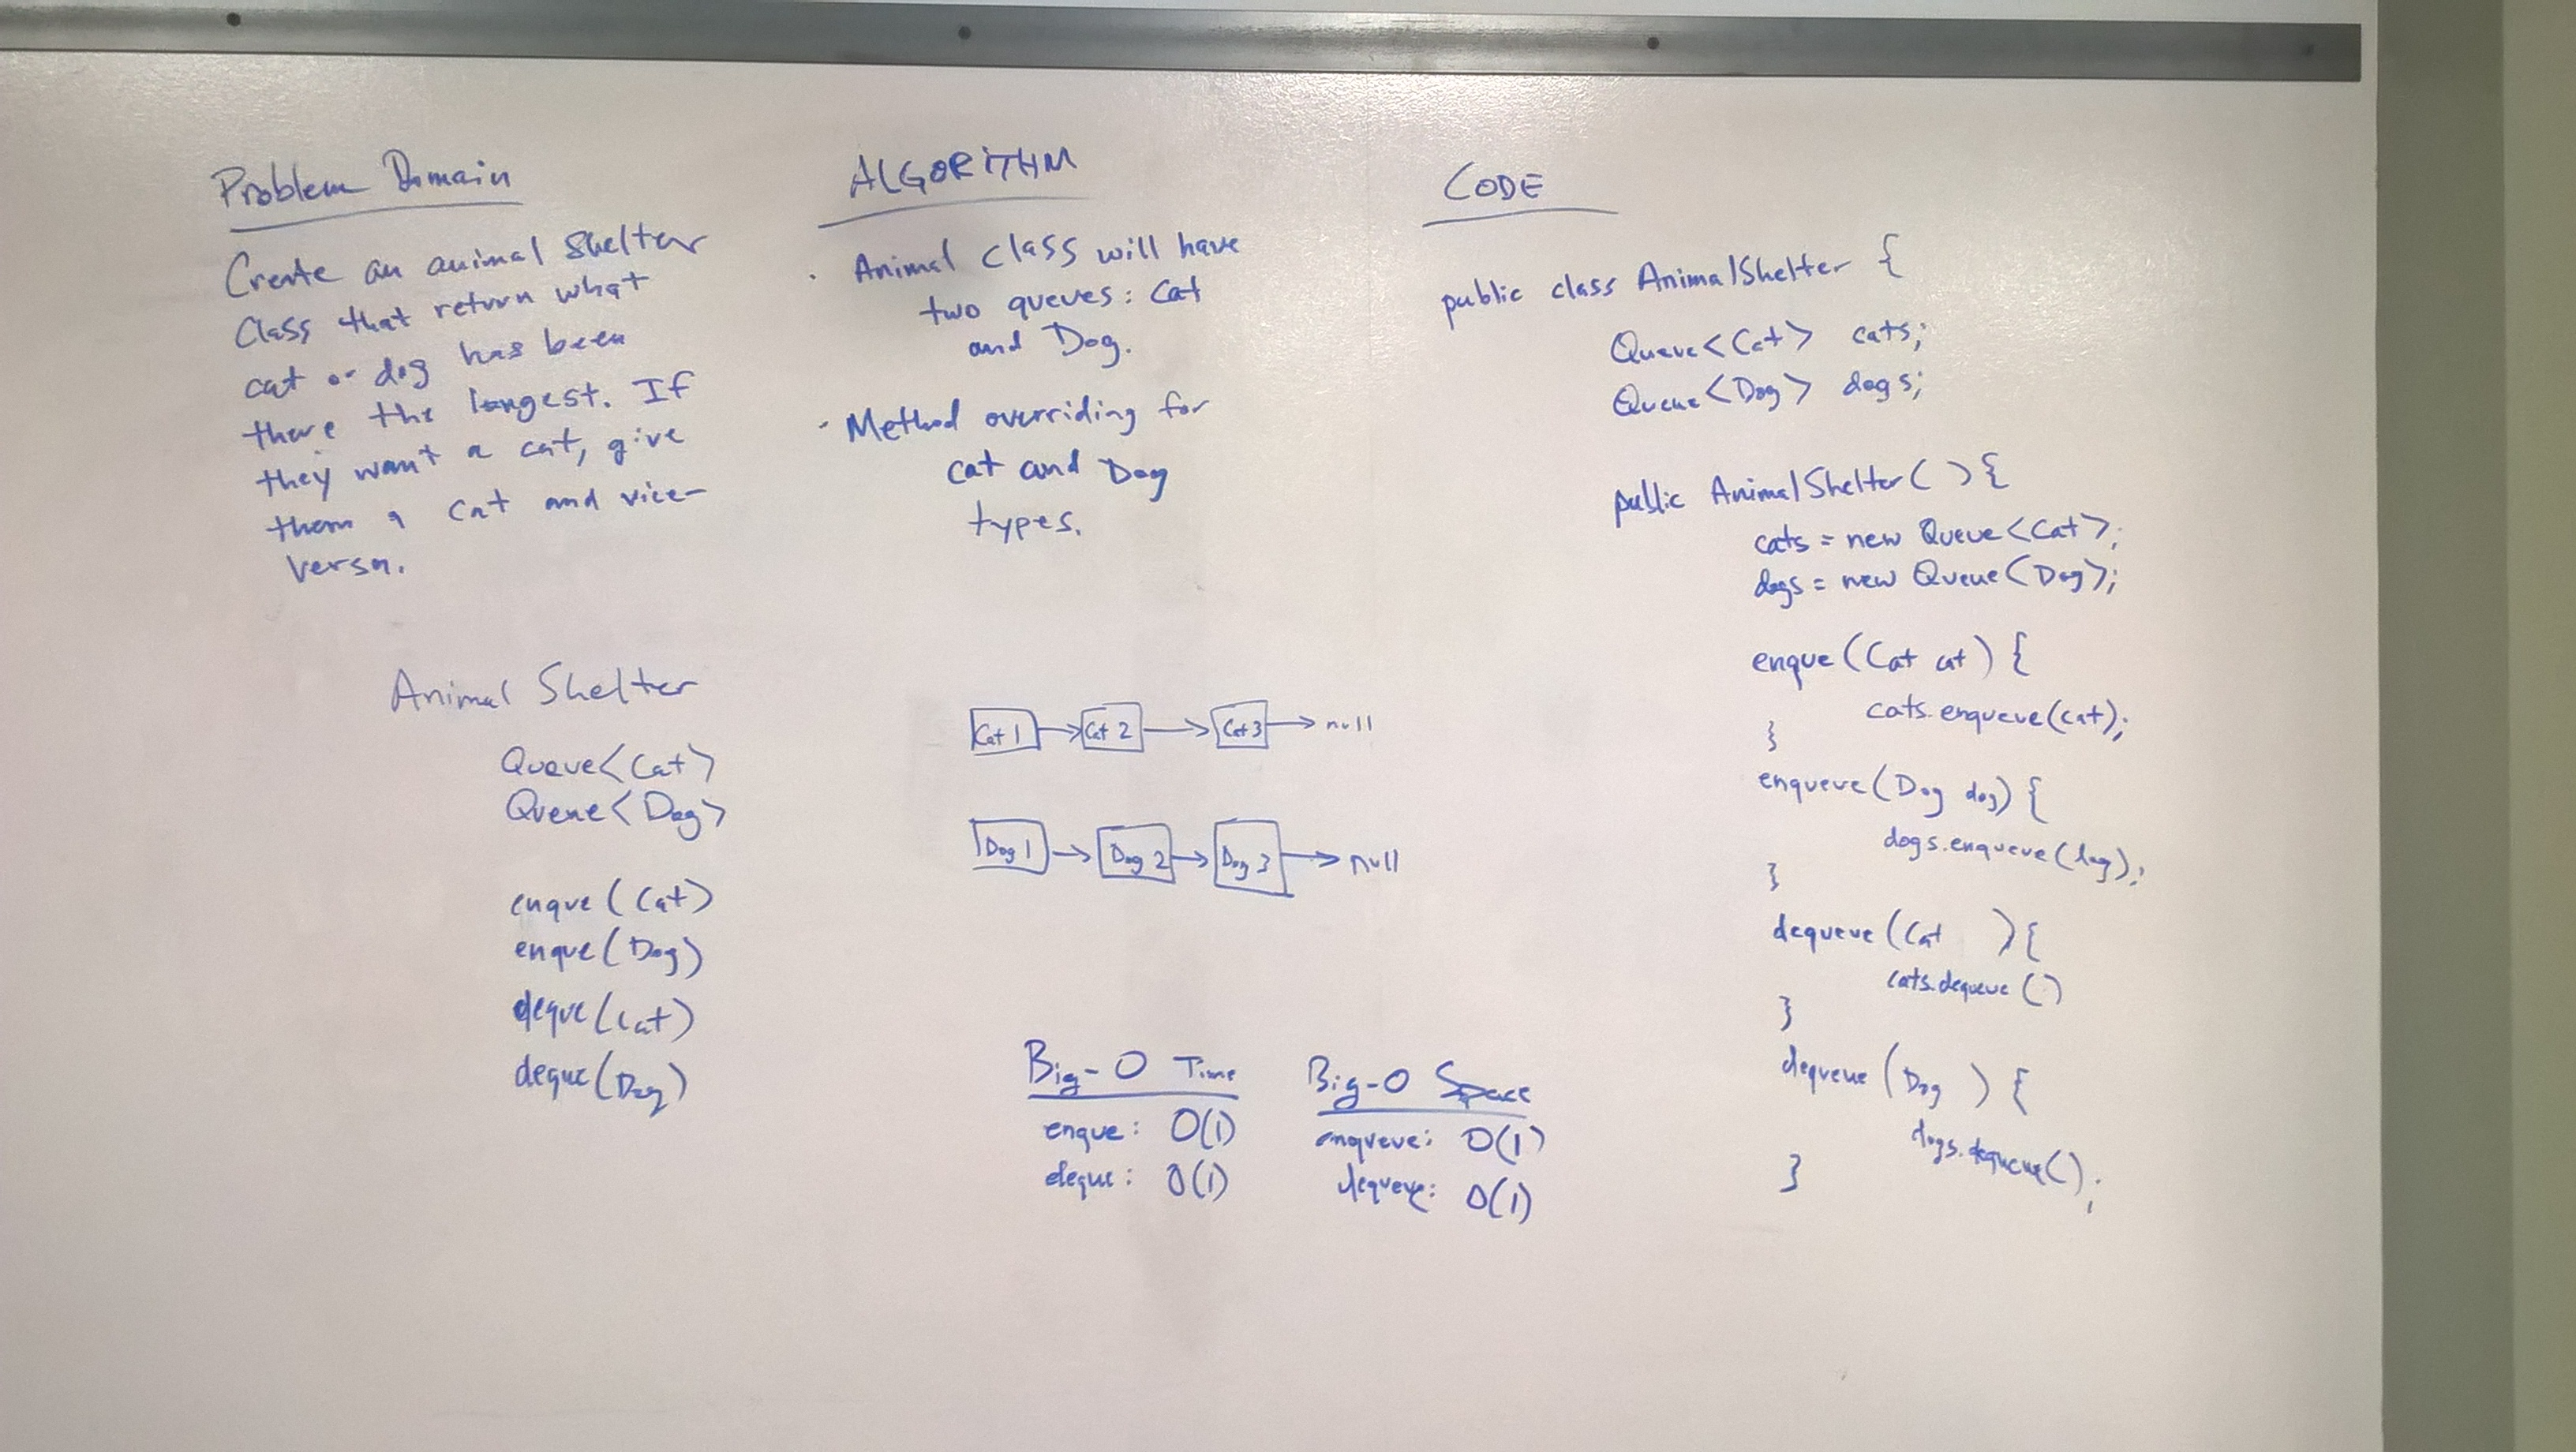 Problem Domain
Create an animal shelter
Class that return what
cat or dog has been
there the longest. If
they want a cat, give
them a cat and vice-
versa.
Animal Shelter
Queue<Cat>
Queue<Dog>
enque(Cat)
enque(Dog)
deque(Cat)
deque(Dog)
ALGORITHM
· Animal class will have
two queues: Cat
and Dog.
· Method overriding for
cat and Dog
types.
Cat 1 Cat 2 Cat 3 null
Dog 1 Dog 2 Dog 3 null
Big-O Time
enque: O(1)
deque: O(1)
Big-O Space
enqueue: O(1)
dequeue: O(1)
CODE
public class AnimalShelter {
Queue<Cat> cats;
Queue<Dog> dogs;
public AnimalShelter( ){
cats = new Queue<Cat>;
dogs = new Queue<Dog>;
enque(Cat cat) {
cats.enqueue(cat);
}
enqueue(Dog dog) {
dogs.enqueue(dog);
}
dequeue(Cat ){
cats.dequeue()
}
dequeue(Dog ) {
dogs.dequeue();
}